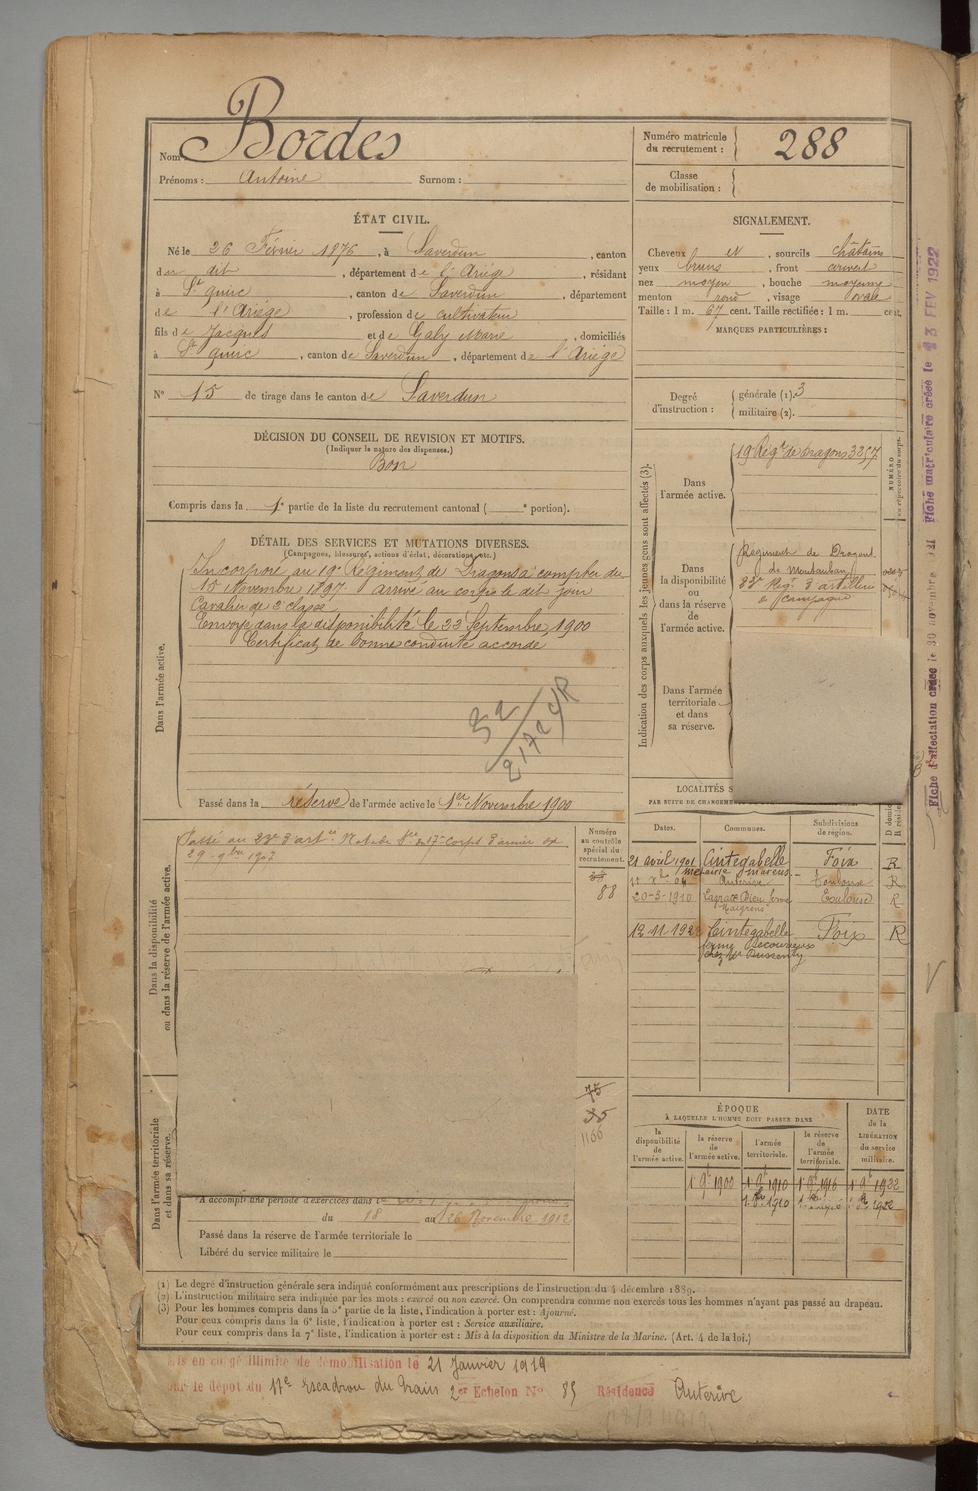 Nom Bordes
Prénoms : Antoine Surnom :
Numéro matricule du recrutement : 288
Classe de mobilisation :
ÉTAT CIVIL.
Né le 26 Février 1876, à Saverdun, canton
du dit, département de l'Ariège, résidant
à St quirc, canton de Saverdun, département
de l'Ariège, profession de cultivateur
fils de Jacques et de Galy Marie, domiciliés
à St quirc, canton de Saverdun, département de l'Ariège
N° 15 de tirage dans le canton de Saverdun
SIGNALEMENT.
Cheveux et, sourcils châtains
yeux bruns, front couvert
nez moyen, bouche moyenne
menton rond, visage ovale
Taille : 1 m. 67 cent. Taille rectifiée : 1 m. cent.
MARQUES PARTICULIÈRES :
Degré d'instruction : générale (1). 3
militaire (2).
DÉCISION DU CONSEIL DE REVISION ET MOTIFS.
(Indiquer la nature des dispenses.)
Bon
Compris dans la 1e partie de la liste du recrutement cantonal ( e portion).
DÉTAIL DES SERVICES ET MUTATIONS DIVERSES.
(Campagnes, blessures, actions d'éclat, décorations, etc.)
Dans l'armée active.
Incorporé au 19e Régiment de Dragons à compter du
15 Novembre 1897 arrivé au corps le dit jour
Cavalier de 2e classe
Envoyé dans la disponibilité le 22 Septembre 1900
Certificat de bonne conduite accordé
Passé dans la réserve de l'armée active le 1er Novembre 1900
Indication des corps auxquels les jeunes gens sont affectés (3).
Dans l'armée active.
19 Régt de dragons 3257
NUMÉRO au répertoire du corps.
Dans la disponibilité ou dans la réserve de l'armée active.
Régiment de Dragons
de Montauban
23e Régt d'artillerie
de campagne
Dans l'armée territoriale et dans sa réserve.
LOCALITÉS S
PAR SUITE DE CHANGEMEN
Dates. Communes. Subdivisions de région.
21 avril 1901 Cintegabelle Foix R
Auterive Toulouse R
20-3-1910 Toulouse R
Cintegabelle Foix R
Dans la disponibilité ou dans la réserve de l'armée active.
Passé au 23e d'artie
29-9bre 1907
Numéro au contrôle spécial du recrutement.
88
75
1166
Dans l'armée territoriale et dans sa réserve.
A accompli une période d'exercices dans le
du 18 au 26 Novembre 1912
Passé dans la réserve de l'armée territoriale le
Libéré du service militaire le
ÉPOQUE
À LAQUELLE L'HOMME DOIT PASSER DANS
la disponibilité de l'armée active.
la réserve de l'armée active.
l'armée territoriale.
la réserve de l'armée territoriale.
DATE de la LIBÉRATION du service militaire.
(1) Le degré d'instruction générale sera indiqué conformément aux prescriptions de l'instruction du 4 décembre 1889.
(2) L'instruction militaire sera indiquée par les mots : exercé ou non exercé. On comprendra comme non exercés tous les hommes n'ayant pas passé au drapeau.
(3) Pour les hommes compris dans la 5e partie de la liste, l'indication à porter est : Ajourné.
Pour ceux compris dans la 6e liste, l'indication à porter est : Service auxiliaire.
Pour ceux compris dans la 7e liste, l'indication à porter est : Mis à la disposition du Ministre de la Marine. (Art. 4 de la loi.)
Mis en congé illimité de démobilisation le 21 Janvier 1919
par le dépot du 17e Escadron du Train 2er Echelon N° 85 Résidence Auterive
Fiche matriculaire créée le 13 FEV 1922
Fiche d'affectation créée le 30 novembre